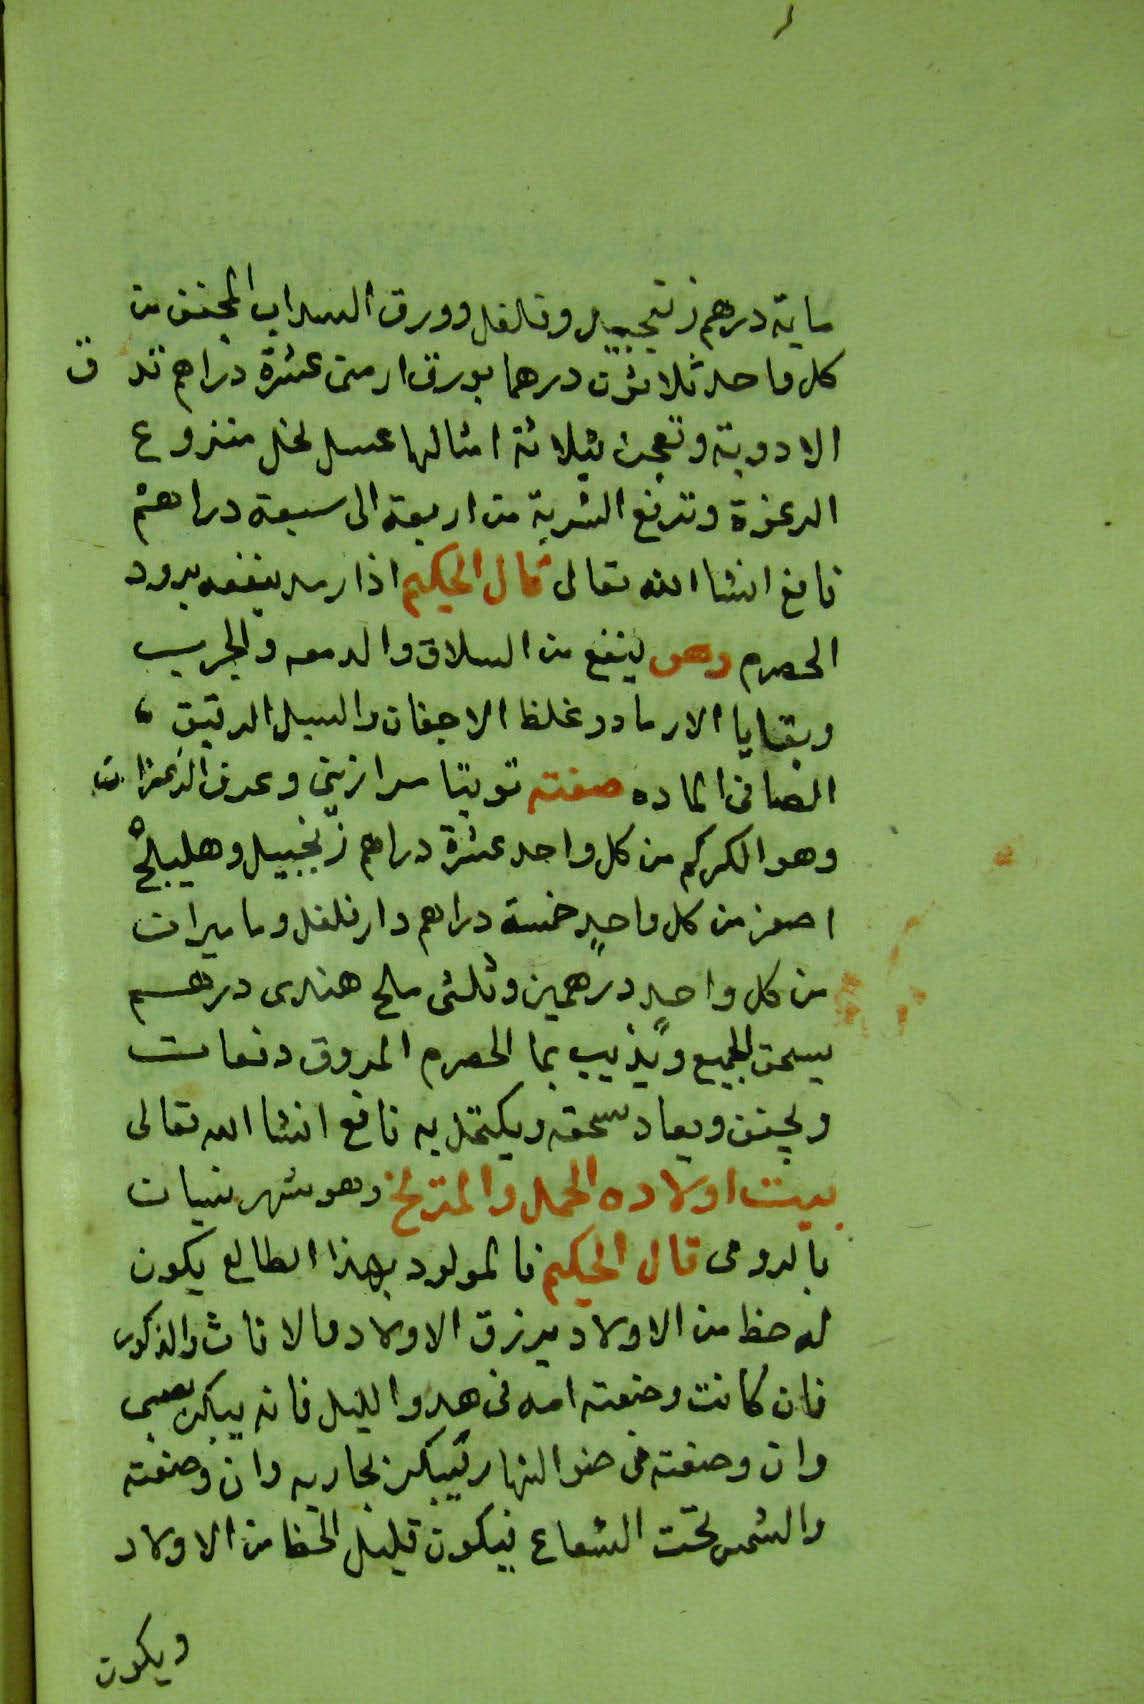 ماية درهم زنجبيل وفلفل وورق السداب المجفف من
كل واحد ثلاثون درهما بورق ارمنى عشرة دراهم تدق
الادوية وتعجن بثلاثة امثالها عسل نحل منزوع
الرغوة وترفع الشربة من اربعة الى سبعة دراهم
نافع انشا الله تعالى قال الحكيم اذا رمد ينفعه برود
الحصرم وهو ينفع من السلاق والدمعه والجرب
وبقايا الارماد وغلظ الاجفان والسبل الرقيق
الصافى الماده صفته توتيا مرازيى وعرق الزعفران
وهو الكركم من كل واحد عشرة دراهم زنجبيل وهليلج
اصفر من كل واحد خمسة دراهم دارفلفل وماميران
من كل واحد درهمين وثلثى ملح هندى درهم
يسحق الجميع ويذيب بما الحصرم المروق دفعات
ويجفف ويعاد سحقه ويكتحل به نافع انشا الله تعالى
بيت اولاده الحمل والمتريخ وهو شهر نيسان
بالرومى قال الحكيم فالمولود بهذا الطالع يكون
له حظ من الاولاد يرزق الاولاد والاناث والذكور
فان كانت وضعته امه فى هدو الليل فانه يبكر بصبى
وان وضعته فى ضو النهار فيبكر بجاريه وان وضعته
والشمس تحت الشعاع فيكون قليل الحظ من الاولاد
ويكون